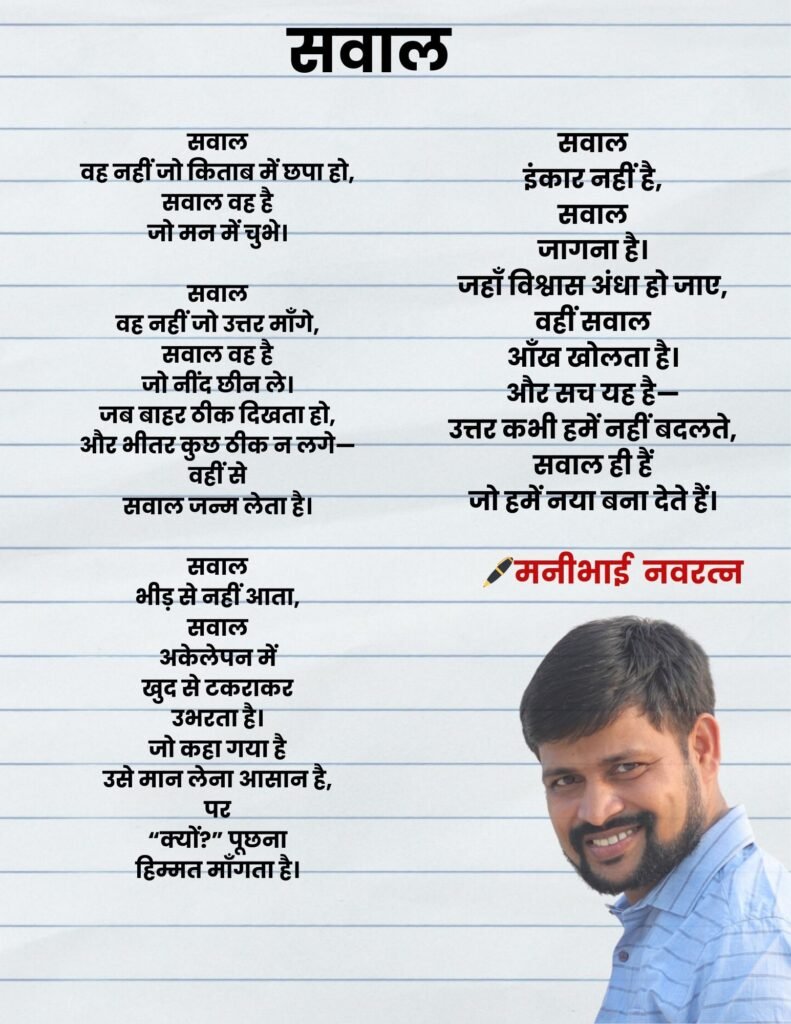 सवाल
सवाल
वह नहीं जो किताब में छपा हो,
सवाल वह है
जो मन में चुभे।
सवाल
वह नहीं जो उत्तर माँगे,
सवाल वह है
जो नींद छीन ले।
जब बाहर ठीक दिखता हो,
और भीतर कुछ ठीक न लगे—
वहीं से
सवाल जन्म लेता है।
सवाल
भीड़ से नहीं आता,
सवाल
अकेलेपन में
खुद से टकराकर
उभरता है।
जो कहा गया है
उसे मान लेना आसान है,
पर
“क्यों?” पूछना
हिम्मत माँगता है।
सवाल
इंकार नहीं है,
सवाल
जागना है।
जहाँ विश्वास अंधा हो जाए,
वहीं सवाल
आँख खोलता है।
और सच यह है—
उत्तर कभी हमें नहीं बदलते,
सवाल ही हैं
जो हमें नया बना देते हैं।
मनीभाई नवरत्न